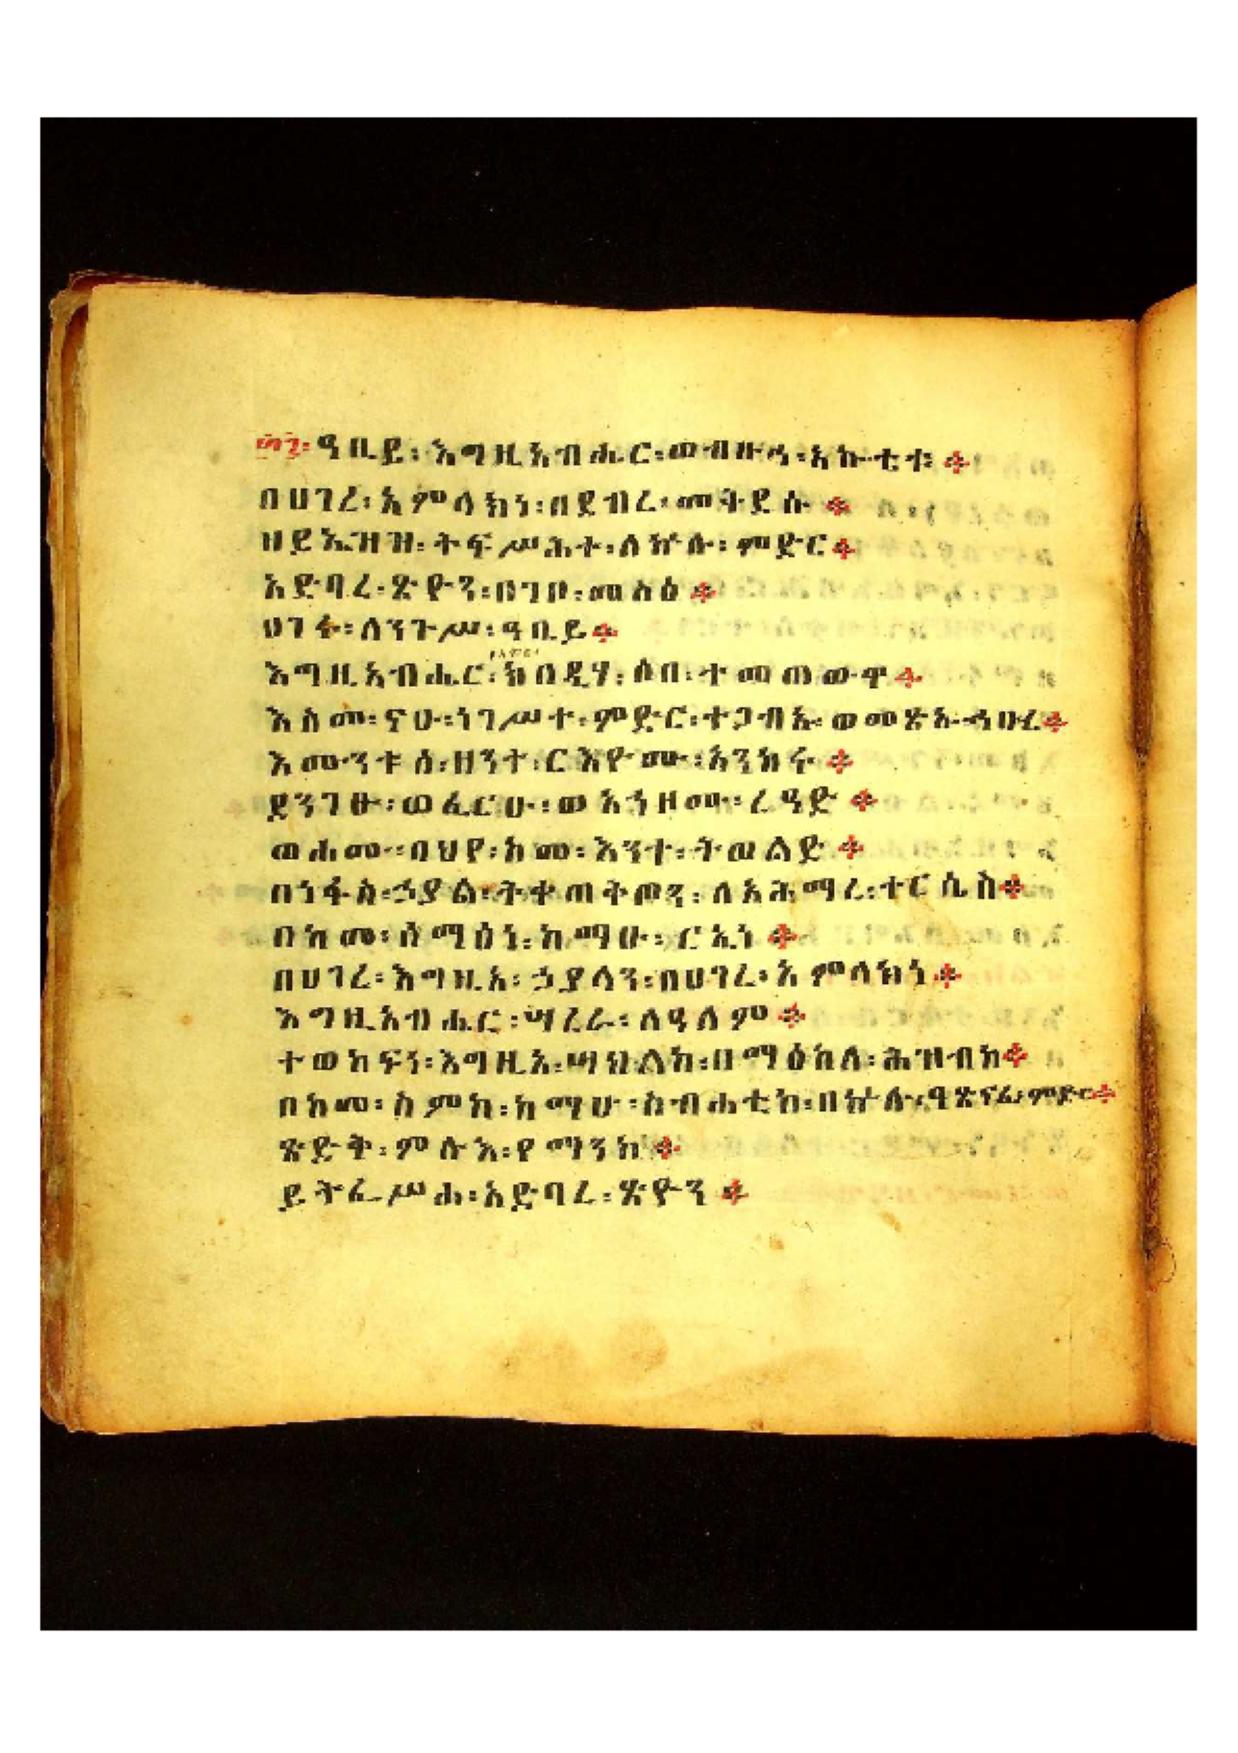 ፵፯፡ ዓቢይ፡ እግዚአብሔር፡ ወብዙኅ፡ አኩቴቱ፡ ፨
በሀገረ፡ አምላክነ፡ በደብረ፡ መቅደሱ ፨
ዘይኤዝዝ፡ ትፍሥሕተ፡ ለኵሉ፡ ምድር ፨
አድባረ፡ ጽዮን፡ በገቦ፡ መስዕ ፨
ሀገሩ፡ ለንጉሥ፡ ዓቢይ ፨
እግዚአብሔር፡ ክበዲሃ፡ ሶበ፡ ተመጠውዋ ፨
እስመ፡ ናሁ፡ ነገሥተ፡ ምድር፡ ተጋብኡ፡ ወመጽኡ፡ ኅቡረ ፨
እሙንቱ ሰ፡ ዘንተ፡ ርእዮሙ፡ አንከሩ ፨
ደንገፁ፡ ወፈርሁ፡ ወአኀዘሙ፡ ረዓድ ፨
ወሐሙ፡ በህየ፡ ከመ፡ እንተ፡ ትወልድ ፨
በነፋስ፡ ኃያል፡ ትቀጠቅጦን፡ ለአሕማረ፡ ተርሴስ ፨
በከመ፡ ሰማዕነ፡ ከማሁ፡ ርኢነ ፨
በሀገረ፡ እግዚአ፡ ኃያላን፡ በሀገረ፡ አምላክነ ፨
እግዚአብሔር፡ ሣረራ፡ ለዓለም ፨
ተወከፍነ፡ እግዚአ፡ ሣህልከ፡ በማዕከለ፡ ሕዝብከ ፨
በከመ፡ ስምከ፡ ከማሁ፡ ስብሐቲከ፡ በኵሉ፡ ዓጽናፈ፡ ምድር ፨
ጽድቅ፡ ምሉእ፡ የማንከ ፨
ይትፌሥሐ፡ አድባረ፡ ጽዮን ፨